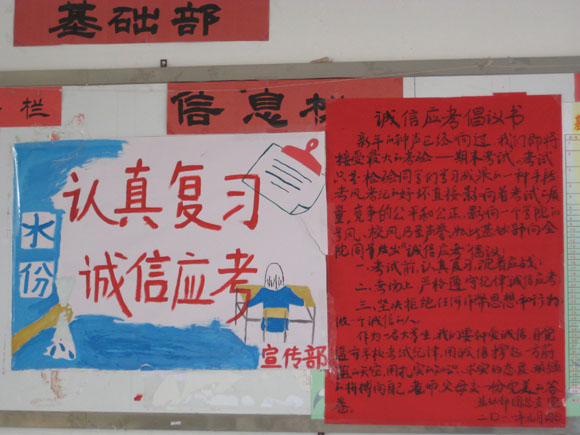 基础部
栏
信息栏
认真复习
诚信应考
水
份
宣传部
诚信应考倡议书
新年的钟声已经响过，我们即将
接受最大的考验——期末考试。考试
只是检验同学们学习成果的一种手段
考风考纪的好坏直接影响着考试的质
量，竞争的公平和公正，影响一个学院的
学风、校风乃至声誉。
院同学发出"诚信应考"倡议：
一、考试前，认真复习，沉着应战；
二、考场上，严格遵守纪律诚信应考
三、坚决拒绝任何作弊思想和行为
做一个诚信的人。
作为一名大学生，我们要
考试纪律，用诚信撑起一方
用扎实的知识、求实的态度
老师父母交一份完美的答
卷。
基础部